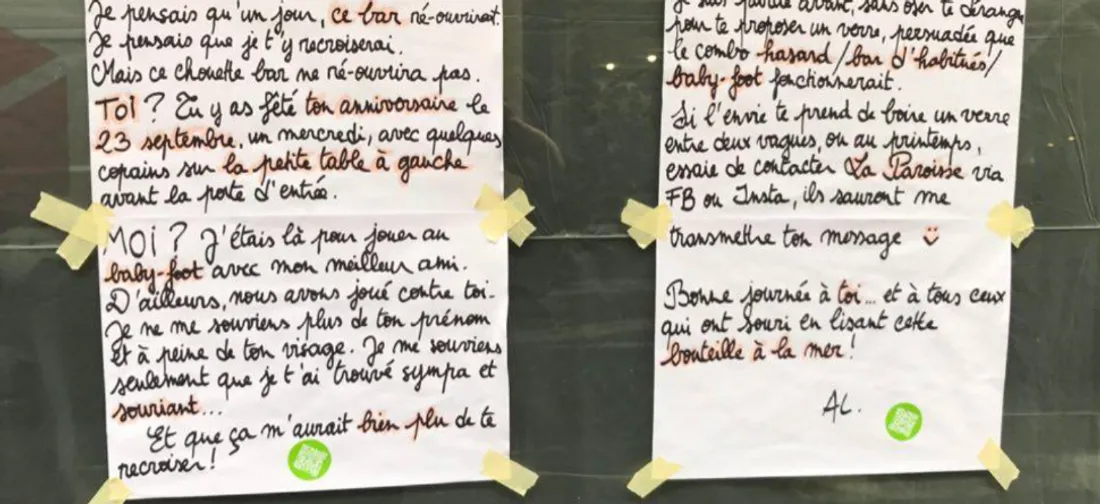 Je pensais qu'un jour, ce bar ré-ouvrirait.
Je pensais que je t'y recroiserai.
Mais ce chouette bar ne ré-ouvrira pas.
TOI ? Tu y as fêté ton anniversaire le
23 septembre, un mercredi, avec quelques
copains sur la petite table à gauche
avant la porte d'entrée.
MOI ? J'étais là pour jouer au
baby-foot avec mon meilleur ami.
D'ailleurs, nous avons joué contre toi.
Je ne me souviens plus de ton prénom
et à peine de ton visage. Je me souviens
seulement que je t'ai trouvé sympa et
souriant...
Et que ça m'aurait bien plu de te
recroiser !
Je suis partie avant, sans oser te déranger
pour te proposer un verre, persuadée que
le combo hasard/bar d'habitués/
baby-foot fonctionnerait.
Si l'envie te prend de boire un verre
entre deux vagues, ou au printemps,
essaie de contacter La Paroisse via
FB ou Insta, ils sauront me
transmettre ton message
Bonne journée à toi... et à tous ceux
qui ont souri en lisant cette
bouteille à la mer !
AL.